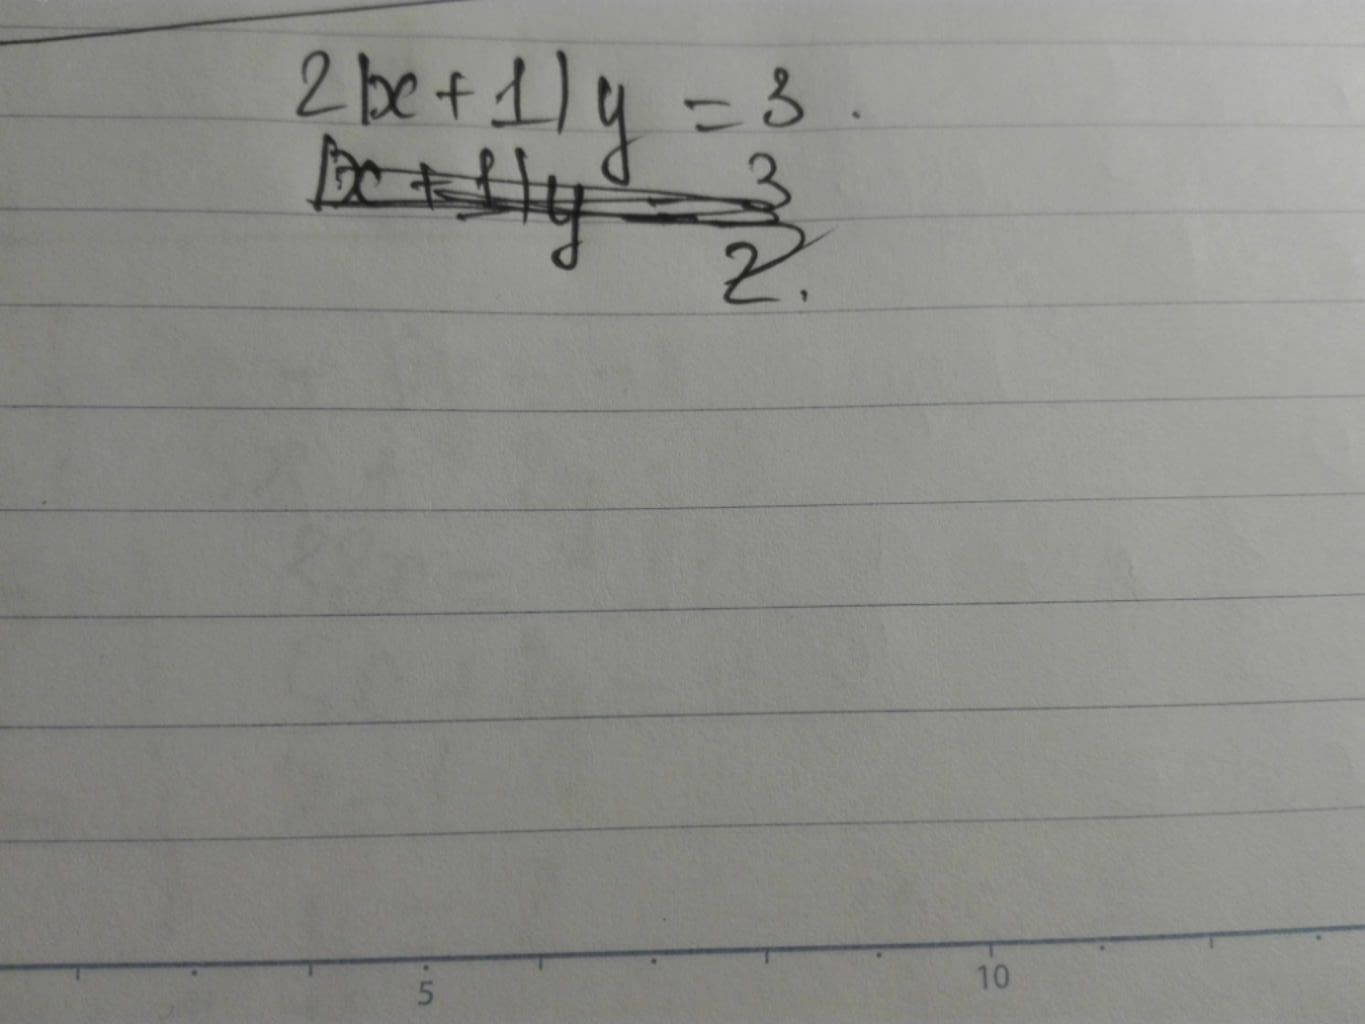 2|x+1|y = 3.
|x+1|y = 3
2.
5 10